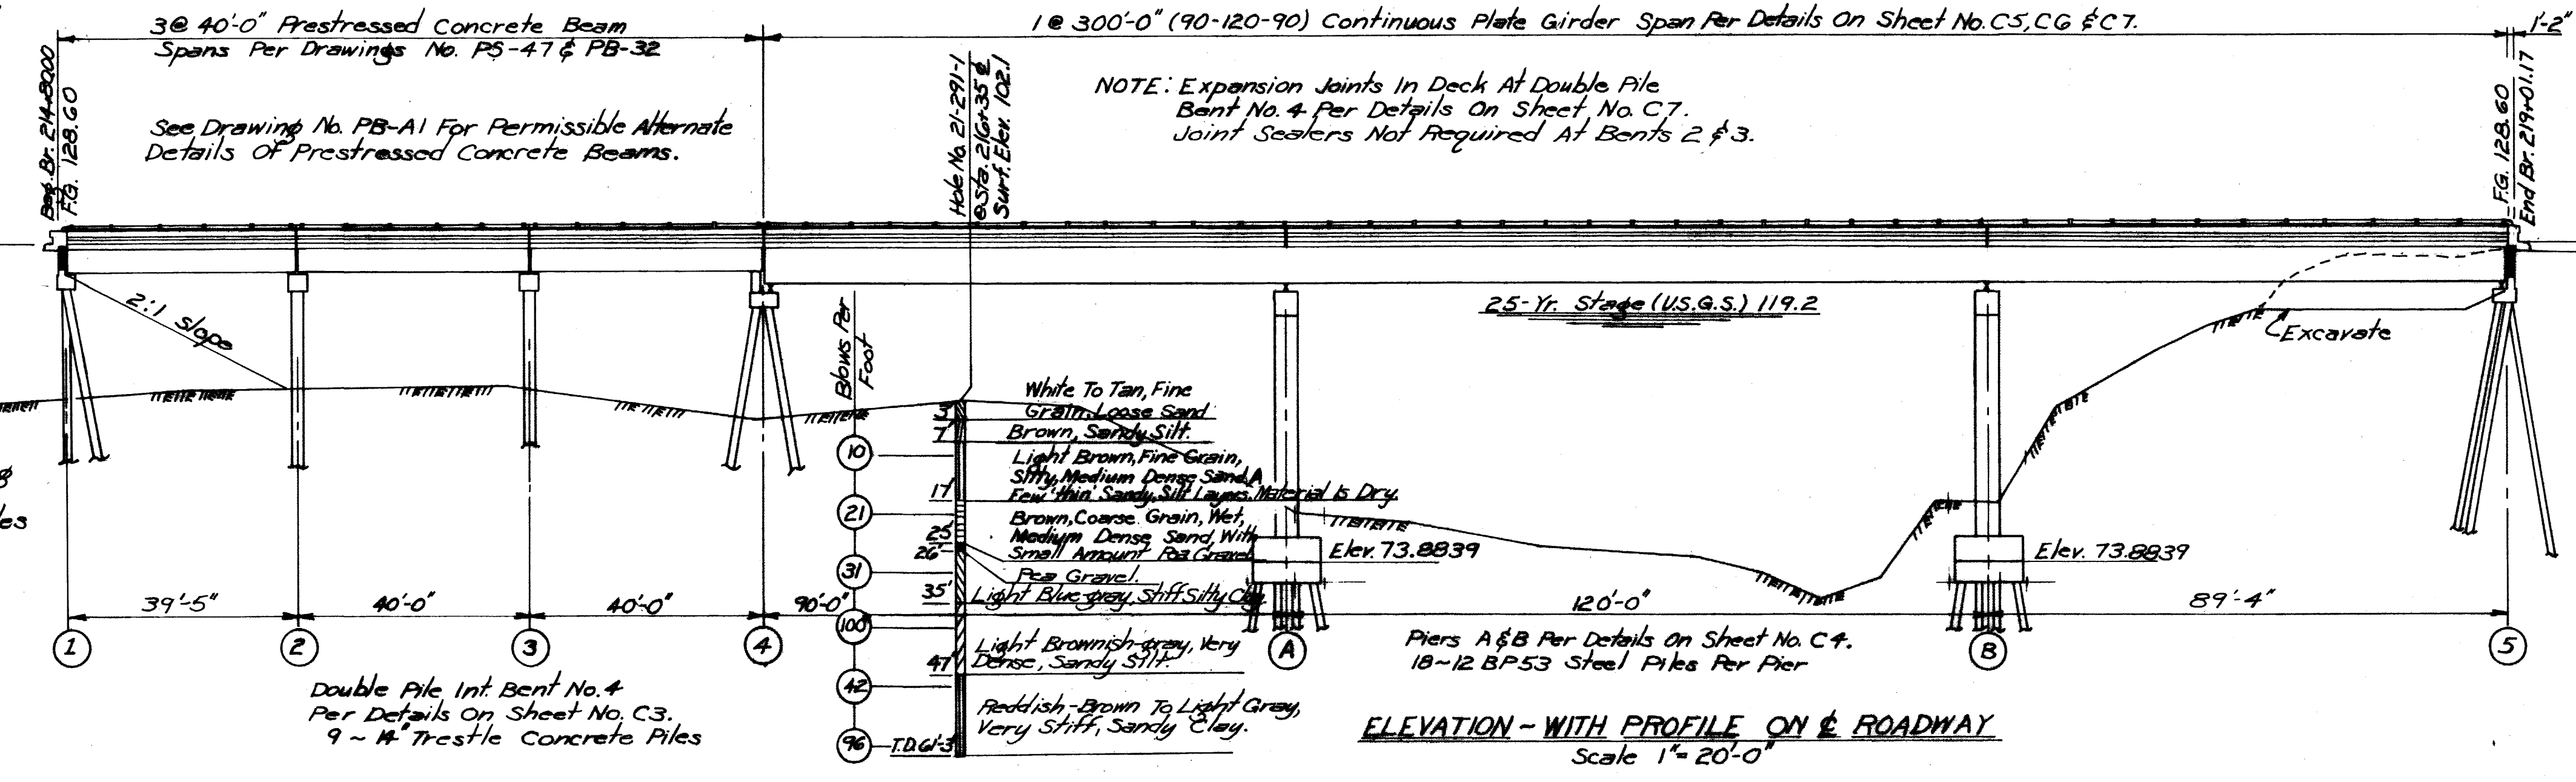 3@ 40'-0" Prestressed Concrete Beam
Spans Per Drawings No. PS-47 & PB-32
1@ 300'-0" (90-120-90) Continuous Plate Girder Span Per Details On Sheet No. C5, C6 & C7.
1'-2"
Beg. Br. 214+80.00
F.G. 128.60
See Drawing No. PB-A1 For Permissible Alternate
Details Of Prestressed Concrete Beams.
Hole No. 21-291-1
@ Sta. 216+35 ℄
Surf. Elev. 102.1
NOTE: Expansion Joints In Deck At Double Pile
Bent No. 4 Per Details On Sheet No. C7.
Joint Sealers Not Required At Bents 2 & 3.
F.G. 128.60
End Br. 219+01.17
2:1 slope
Blows Per
Foot
25-Yr. Stage (U.S.G.S.) 119.2
Excavate
White To Tan, Fine
Grain, Loose Sand
3'
Brown, Sandy Silt.
7'
10
Light Brown, Fine Grain,
Silty, Medium Dense Sand. A
Few 'thin' Sandy, Silt Layers. Material Is Dry.
17'
21
Brown, Coarse Grain, Wet,
Medium Dense Sand, With
Small Amount Pea Gravel
25'
26'
Elev. 73.8839
Elev. 73.8839
31
Pea Gravel.
35'
Light Blue-gray, Stiff Silty Clay
39'-5"
40'-0"
40'-0"
90'-0"
120'-0"
89'-4"
100
1
2
3
4
A
B
5
Light Brownish-gray, Very
Dense, Sandy Silt.
47'
Piers A & B Per Details On Sheet No. C4.
18~12 BP53 Steel Piles Per Pier
42
Double Pile Int. Bent No. 4
Per Details On Sheet No. C3.
9 ~ 14" Trestle Concrete Piles
Reddish-Brown To Light Gray,
Very Stiff, Sandy Clay.
96
T.D. 61'-3"
ELEVATION ~ WITH PROFILE ON ℄ ROADWAY
Scale 1" = 20'-0"